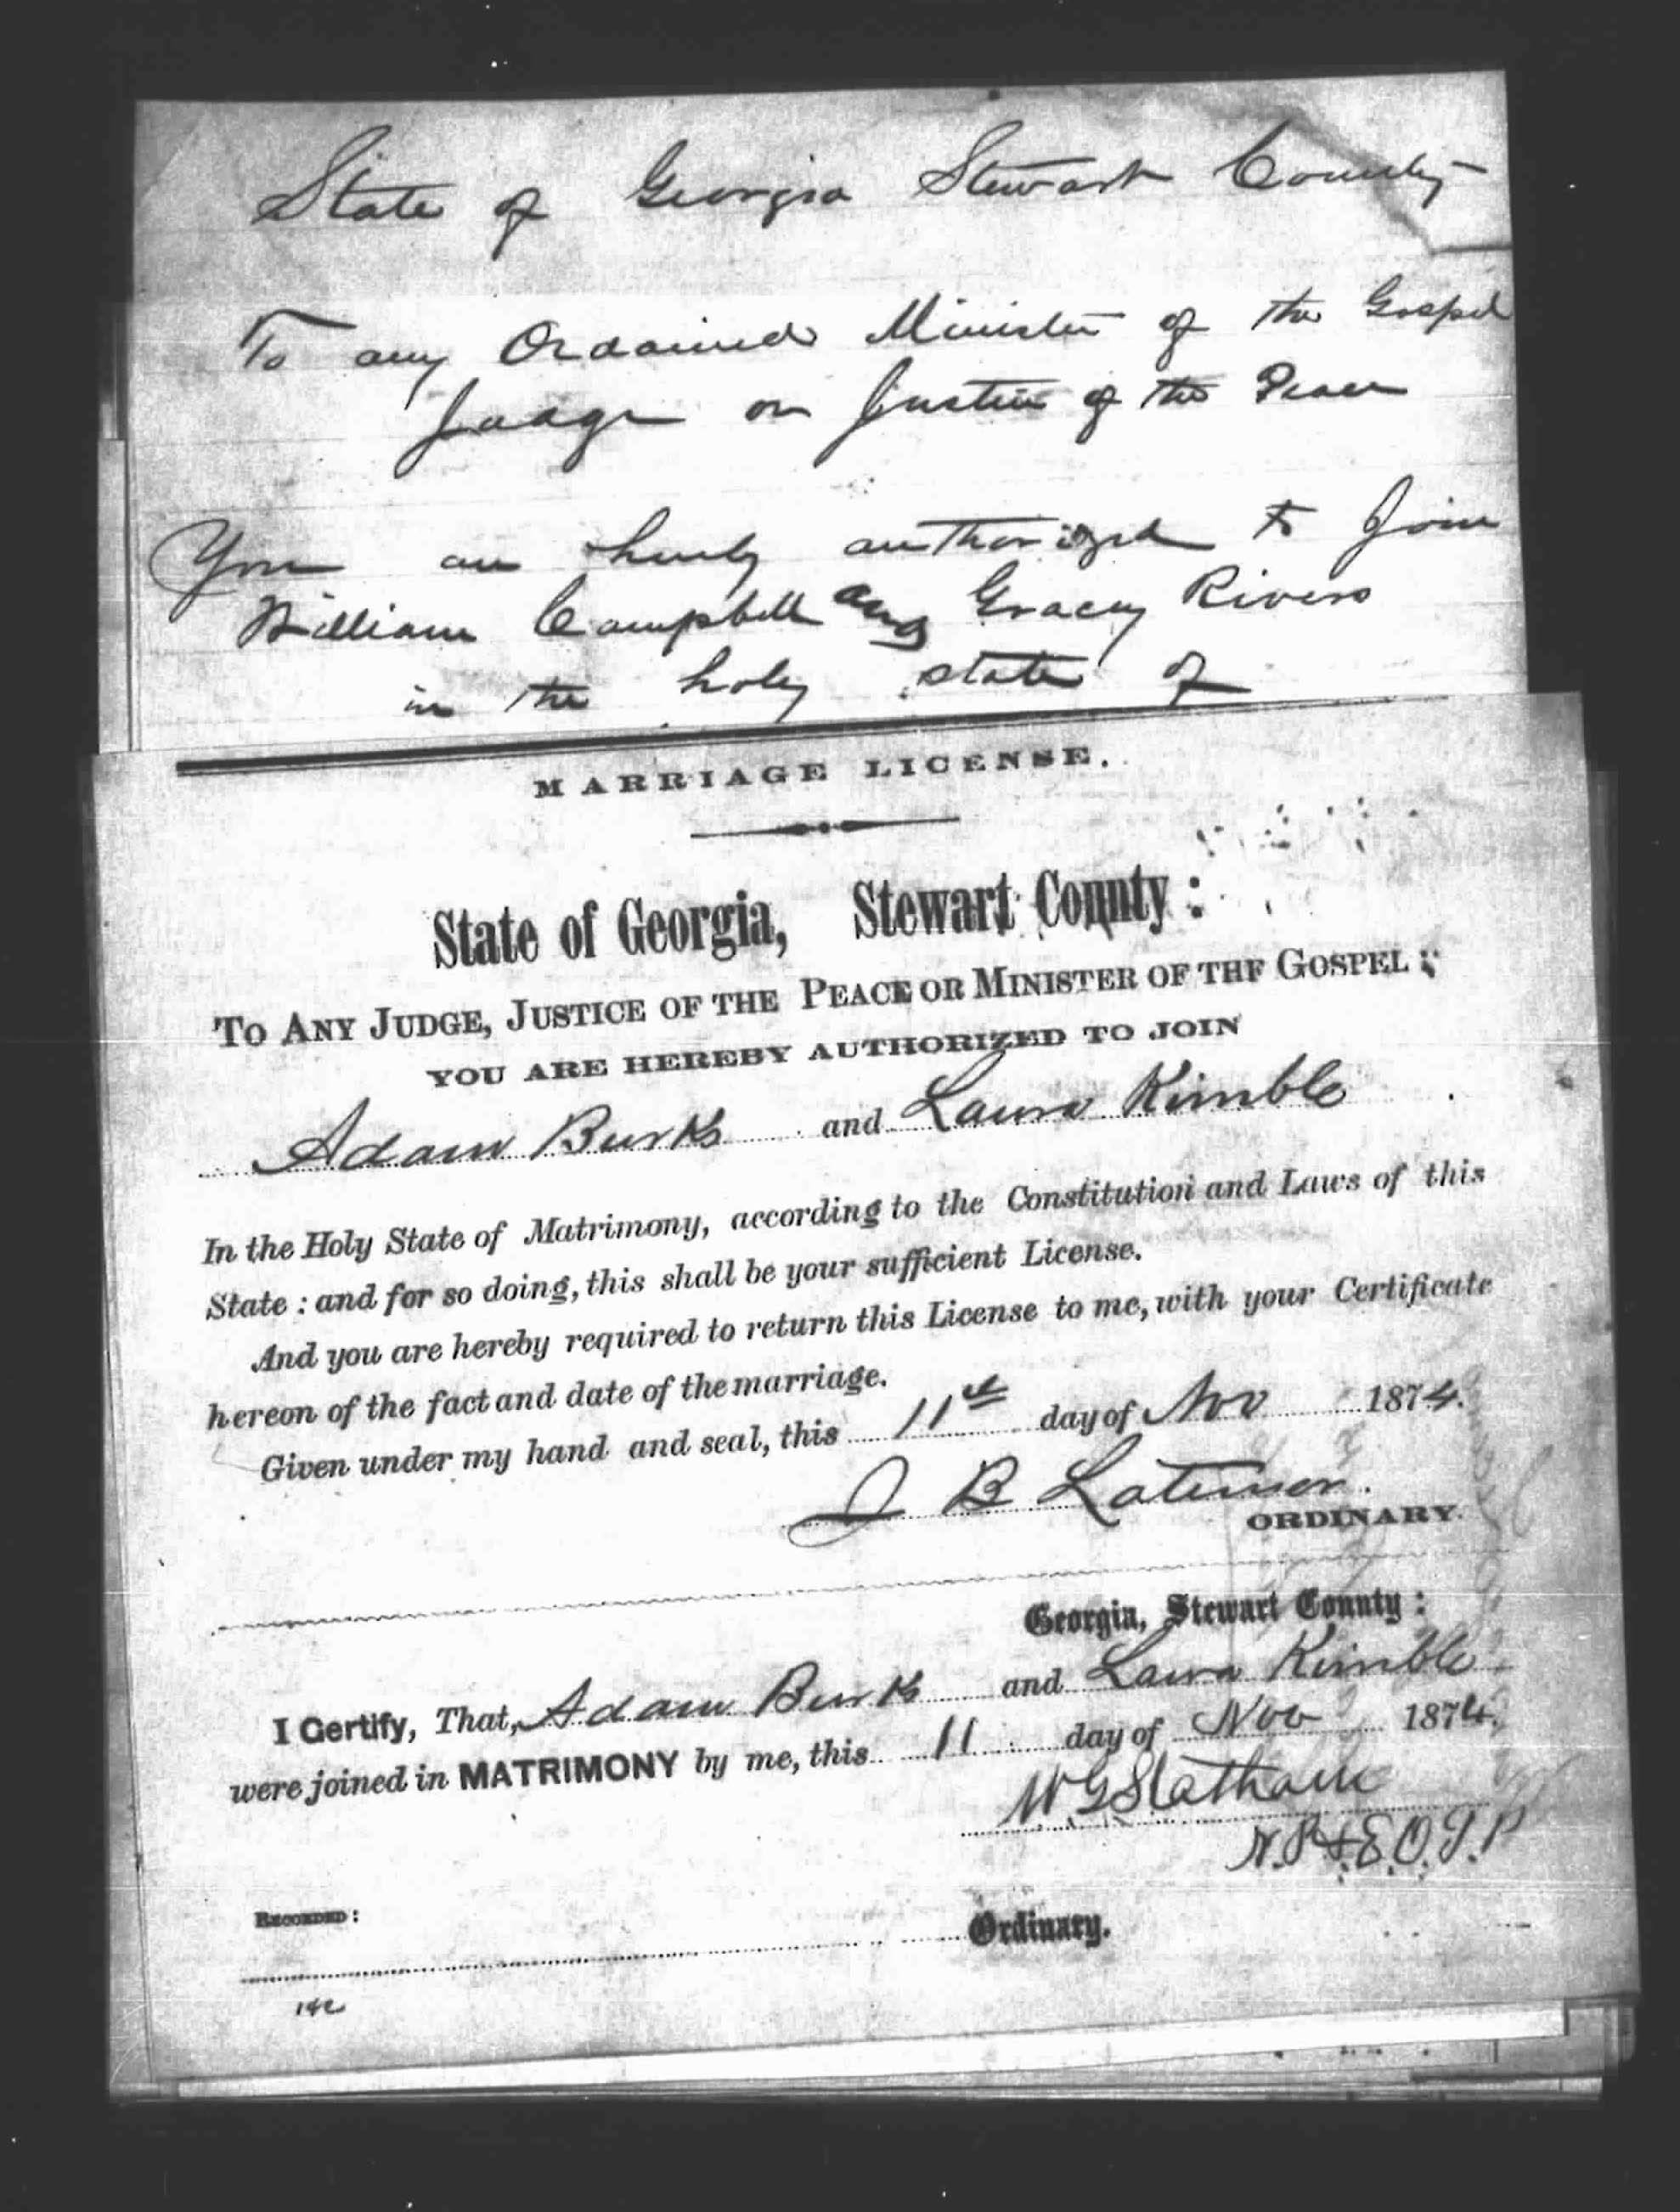 State of Georgia Stewart County
To any Ordained Minister of the Gospel
Judge or Justice of the Peace
You are hereby authorized to Join
William Campbell and Gracey Rivers
in the holy state of
MARRIAGE LICENSE.
State of Georgia, Stewart County :
TO ANY JUDGE, JUSTICE OF THE PEACE OR MINISTER OF THF GOSPEL :
YOU ARE HEREBY AUTHORIZED TO JOIN
Adam Burks and Laura Kimble
In the Holy State of Matrimony, according to the Constitution and Laws of this
State : and for so doing, this shall be your sufficient License.
And you are hereby required to return this License to me, with your Certificate
hereon of the fact and date of the marriage.
Given under my hand and seal, this 11th day of Nov 1874.
J B Latimer
ORDINARY.
Georgia, Stewart County :
I Certify, That, Adam Burks and Laura Kimble
were joined in MATRIMONY by me, this 11 day of Nov 1874.
W G Statham
N.P. & E.O.J.P
RECORDED :
Ordinary.